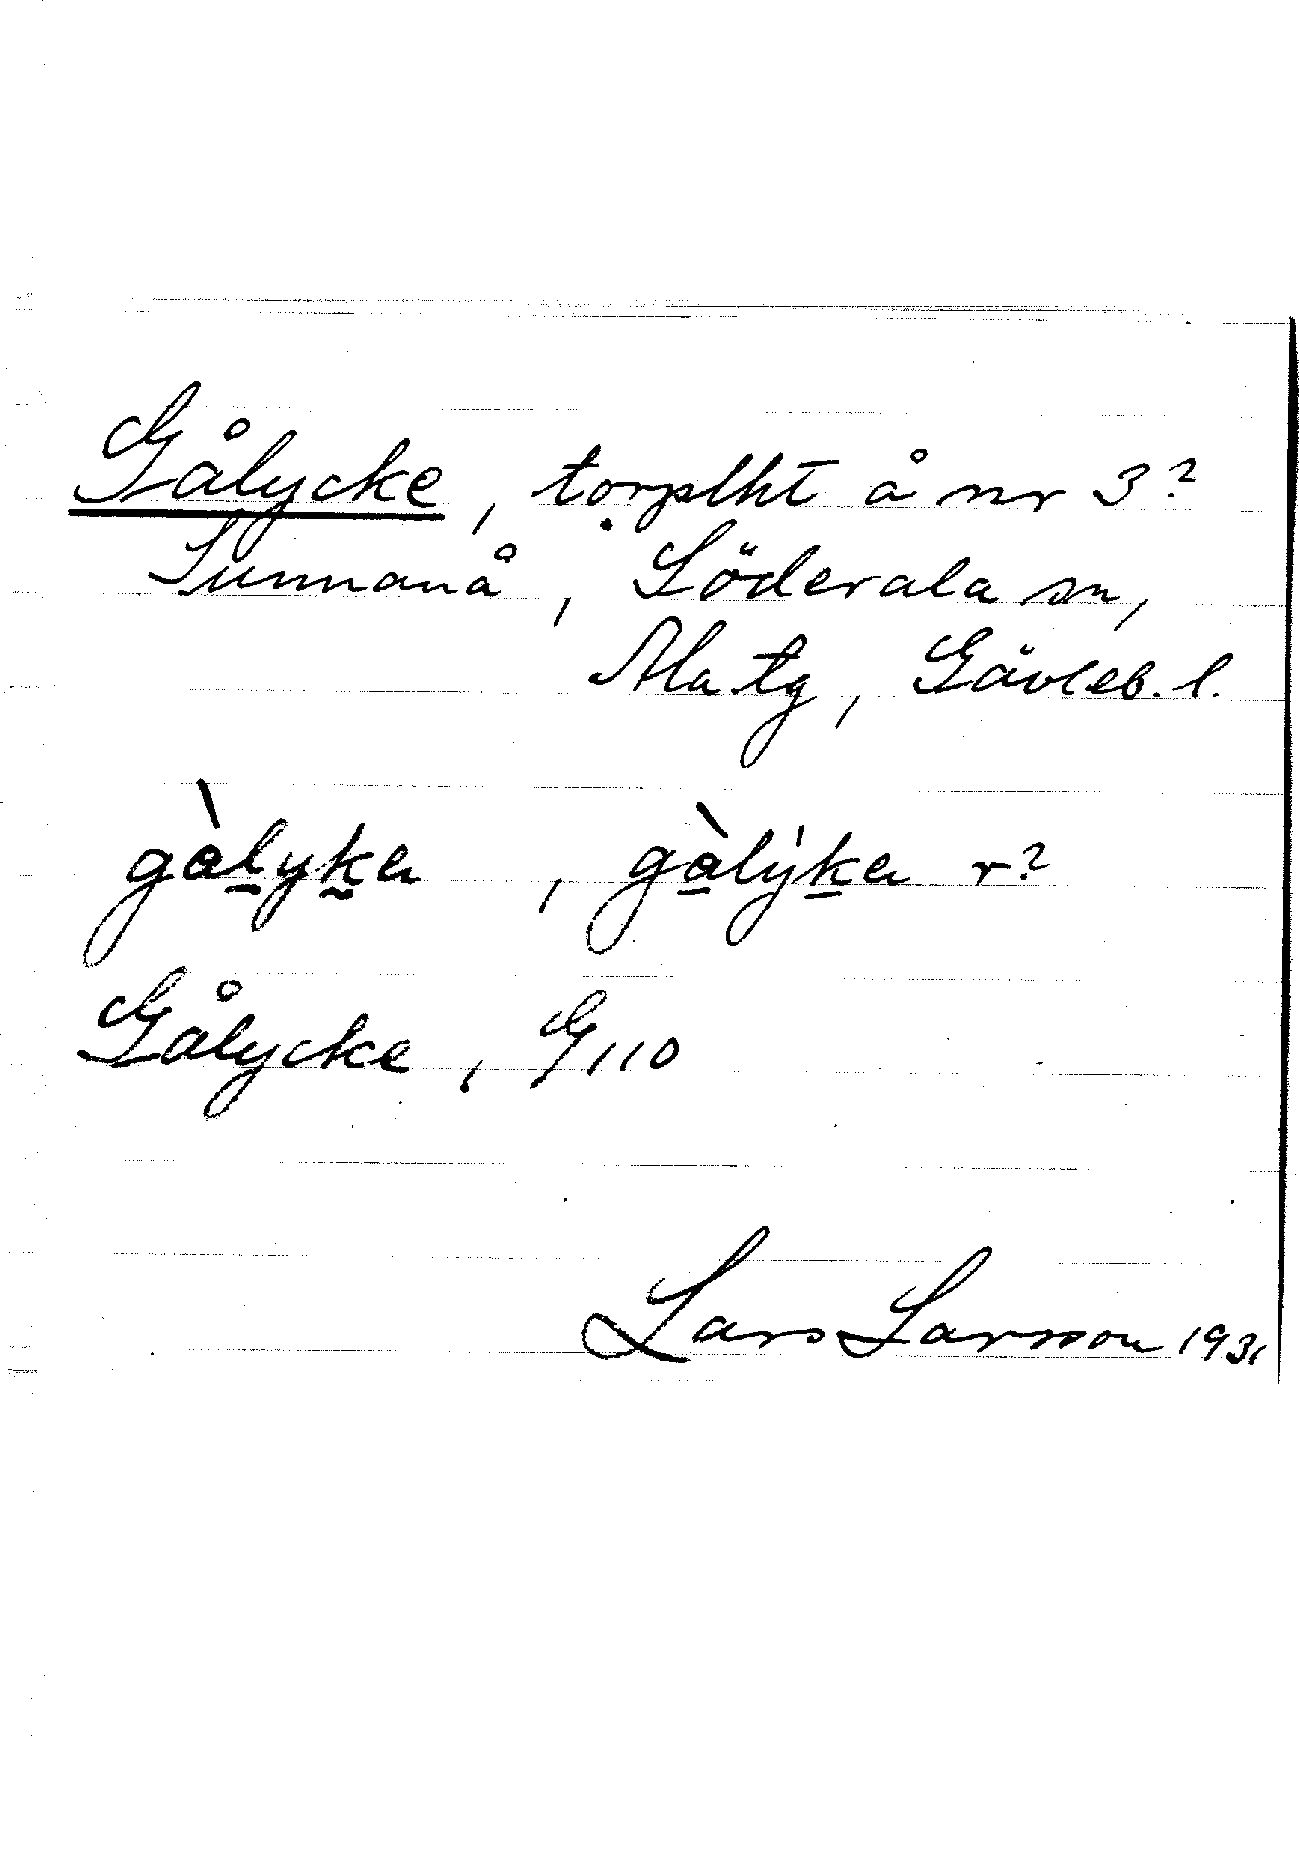 Gålycke, torplht å nr 3²
Sunnanå, Söderala sn,
Ala tg, Gävleb. l.
gàlyka, gàlýka r?
Gålycke, G 110
Lars Larsson 1931